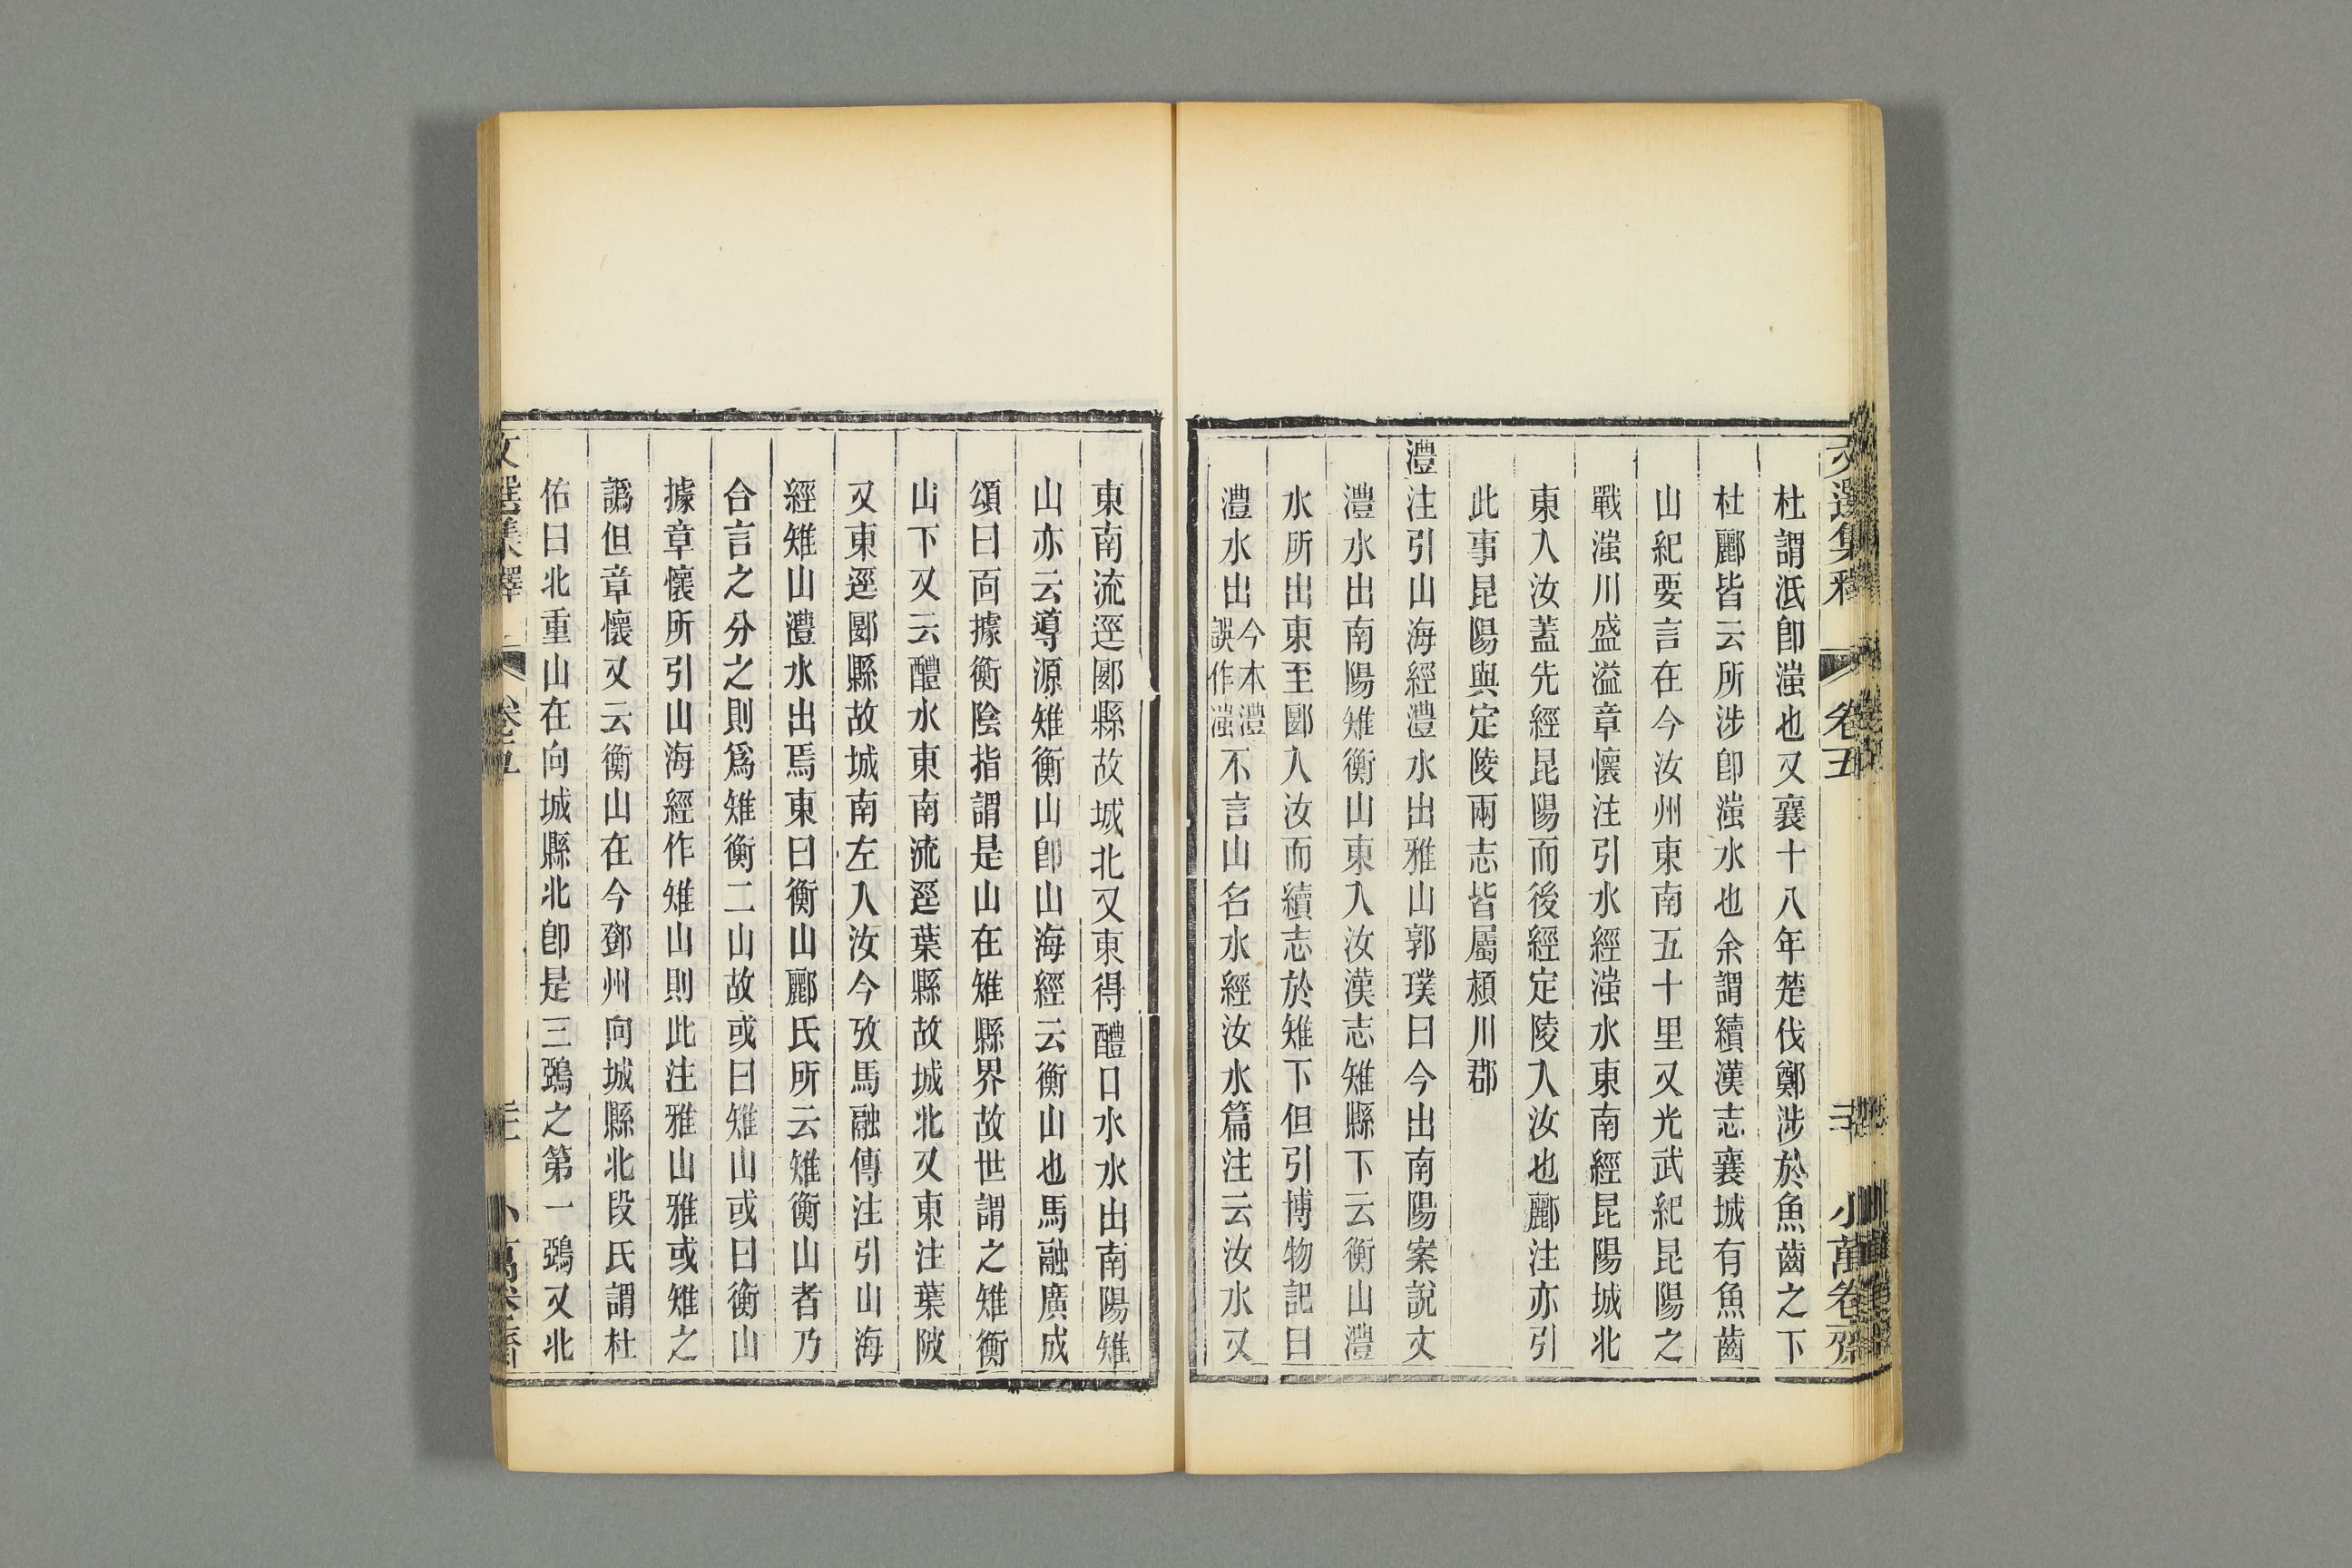 文選集釋 卷五 小萬卷齋
杜謂泜卽滍也又襄十八年楚伐鄭涉於魚齒之下
杜酈皆云所涉卽滍水也余謂續漢志襄城有魚齒
山紀要言在今汝州東南五十里又光武紀昆陽之
戰滍川盛溢章懷注引水經滍水東南經昆陽城北
東入汝蓋先經昆陽而後經定陵入汝也酈注亦引
此事昆陽與定陵兩志皆屬潁川郡
澧注引山海經澧水出雅山郭璞曰今出南陽案說文
澧水出南陽雉衡山東入汝漢志雉縣下云衡山澧
水所出東至郾入汝而續志於雉下但引博物記曰
澧水出今本澧誤作滍不言山名水經汝水篇注云汝水又
東南流逕郾縣故城北又東得醴口水水出南陽雉
山亦云導源雉衡山卽山海經云衡山也馬融廣成
頌曰面據衡陰指謂是山在雉縣界故世謂之雉衡
山下又云醴水東南流逕葉縣故城北又東注葉陂
又東逕郾縣故城南左入汝今攷馬融傳注引山海
經雉山澧水出焉東曰衡山酈氏所云雉衡山者乃
合言之分之則爲雉衡二山故或曰雉山或曰衡山
據章懷所引山海經作雉山則此注雅山雅或雉之
譌但章懷又云衡山在今鄧州向城縣北段氏謂杜
佑曰北重山在向城縣北卽是三鵶之第一鵶又北
文選集釋 卷五 小萬卷齋